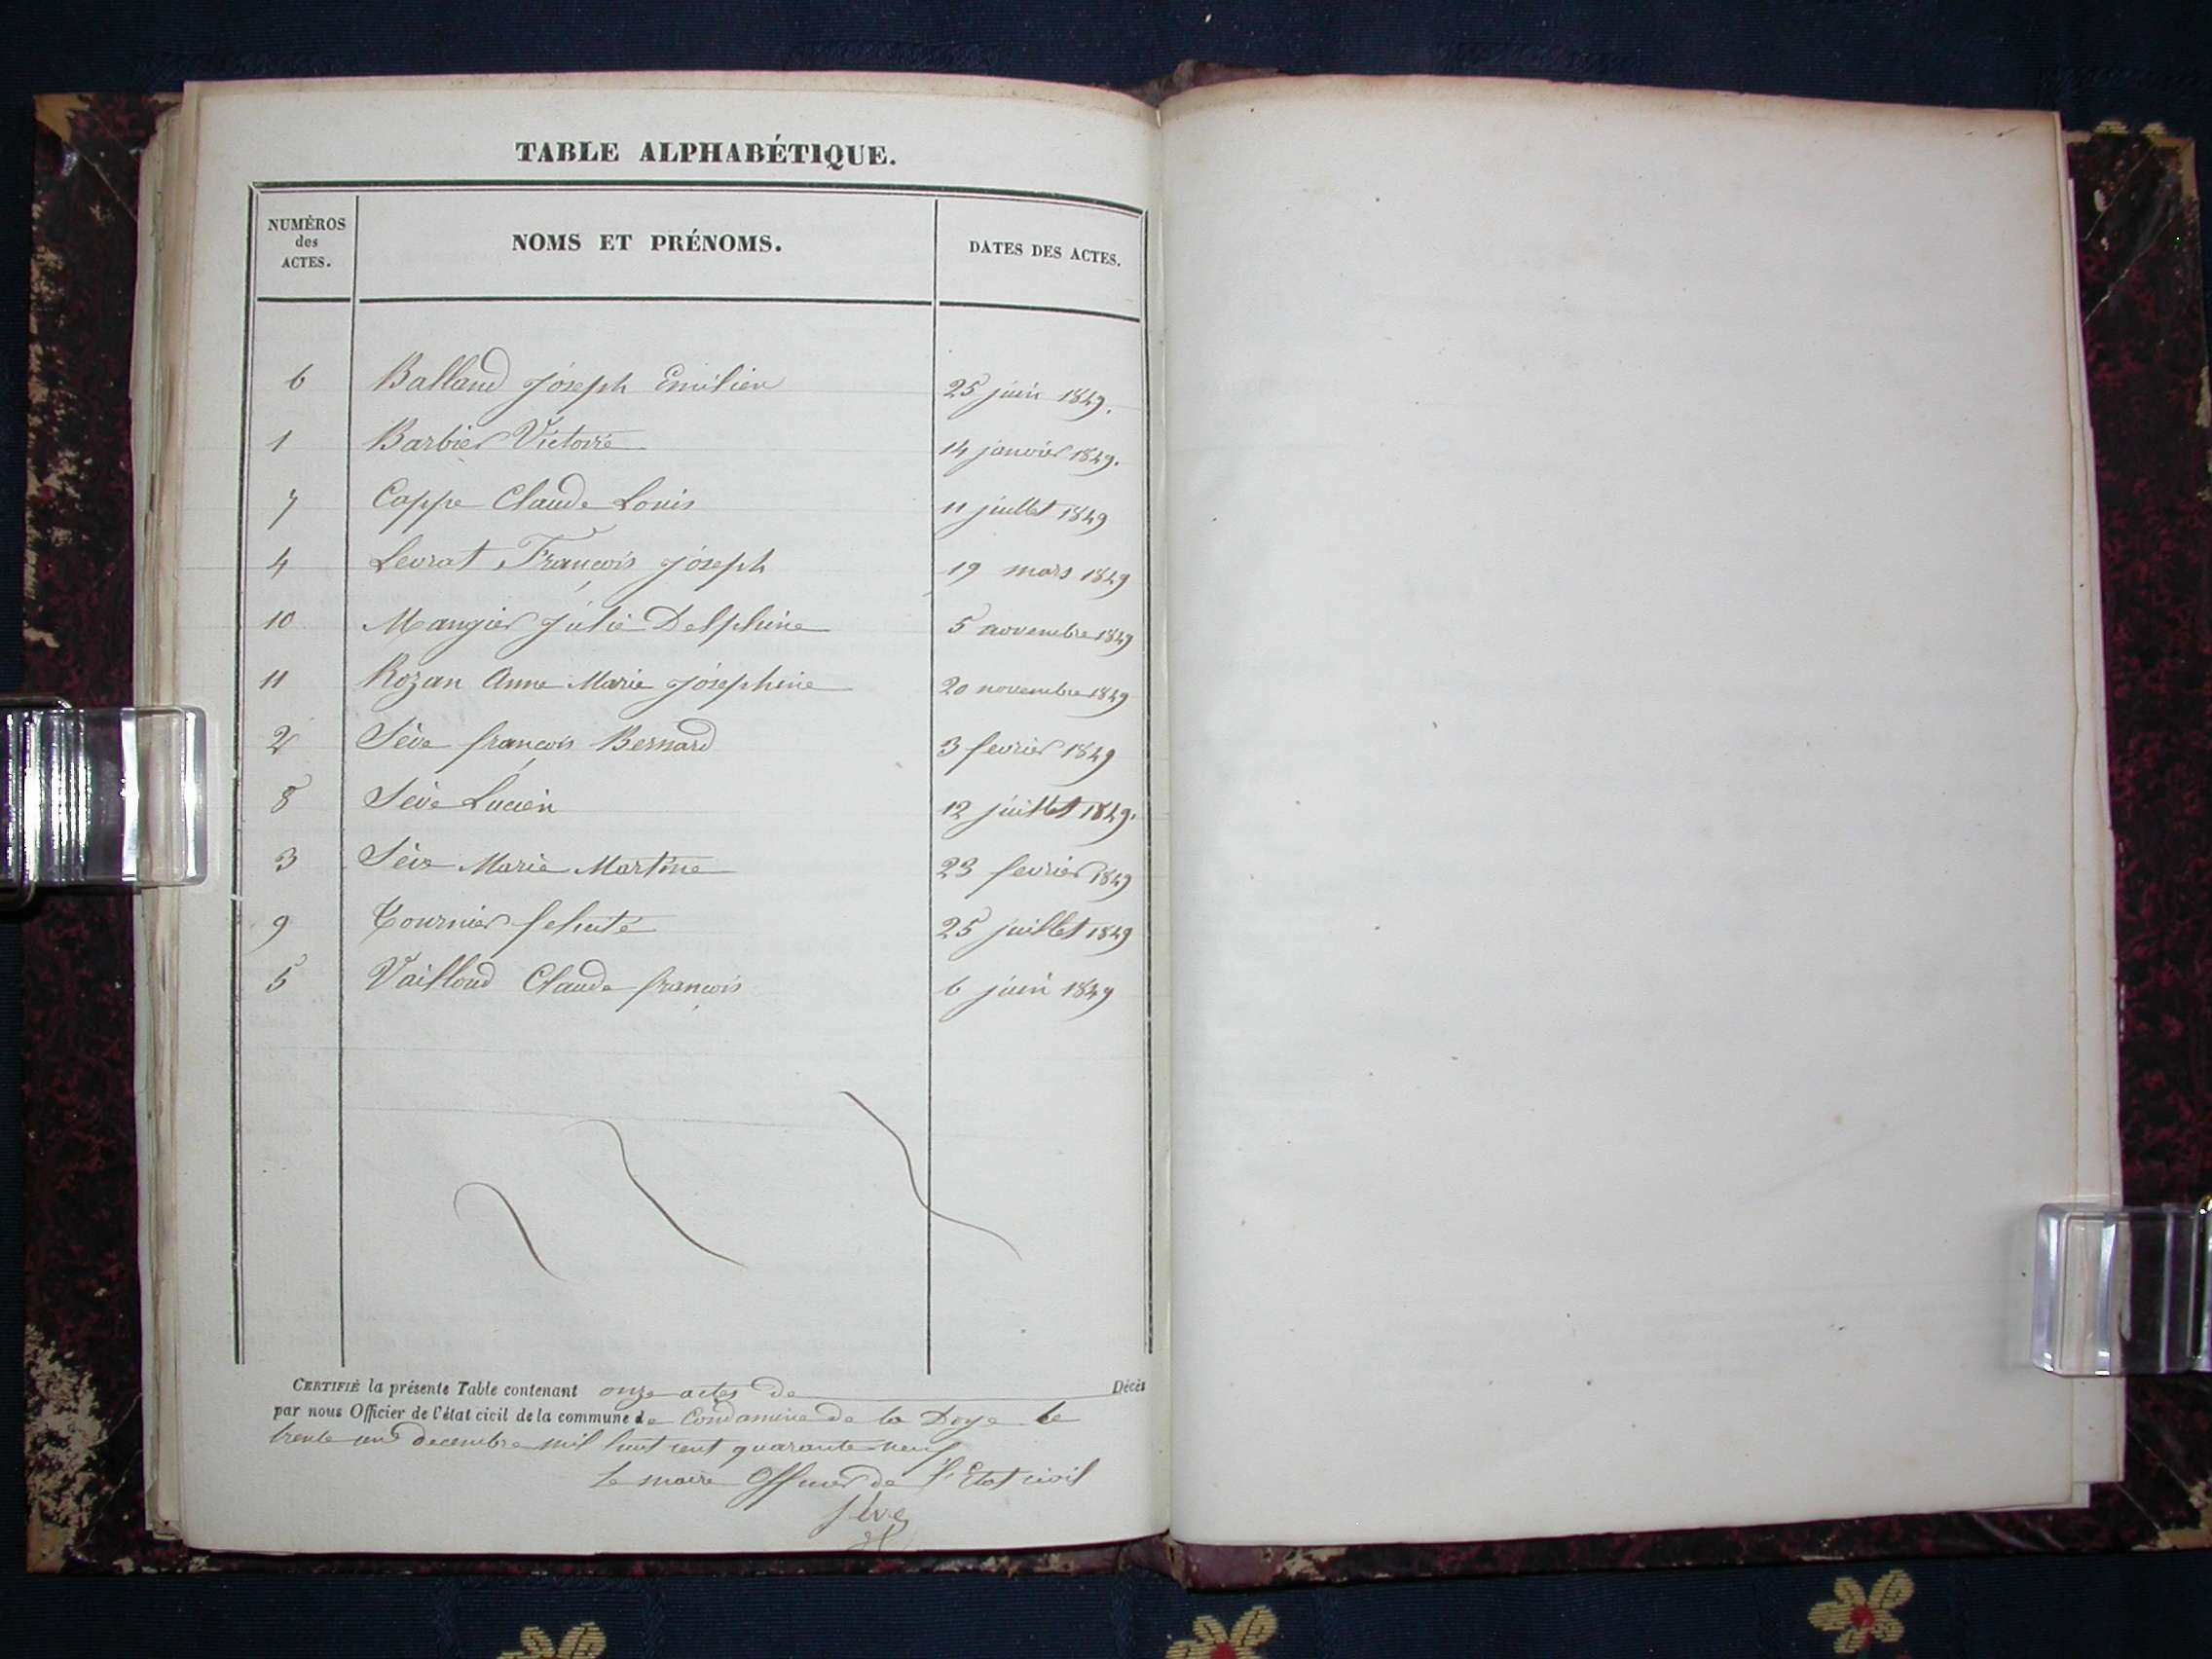 TABLE ALPHABÉTIQUE.
NUMÉROS des ACTES. NOMS ET PRÉNOMS. DATES DES ACTES.
6 Balland joseph Emilien 25 juin 1849.
1 Barbier Victoire 14 janvier 1849.
7 Cappe Claude Louis 11 juillet 1849
4 Levrat François joseph 19 mars 1849
10 Mangier julie Delphine 5 novembre 1849
11 Rozan Anne Marie joséphine 20 novembre 1849
2 Sève françois Bernard 3 fevrier 1849
8 Sève Lucien 12 juillet 1849.
3 Sève Marie Martine 23 fevrier 1849
9 Tournier felicité 25 juillet 1849
5 Vailloud Claude françois 6 juin 1849
CERTIFIÉ la présente Table contenant onze actes de Décès
par nous Officier de l'état civil de la commune de Condamine de la Doye le
trente un decembre mil huit cent quarante neuf
Le maire Officier de l'Etat civil
Sève